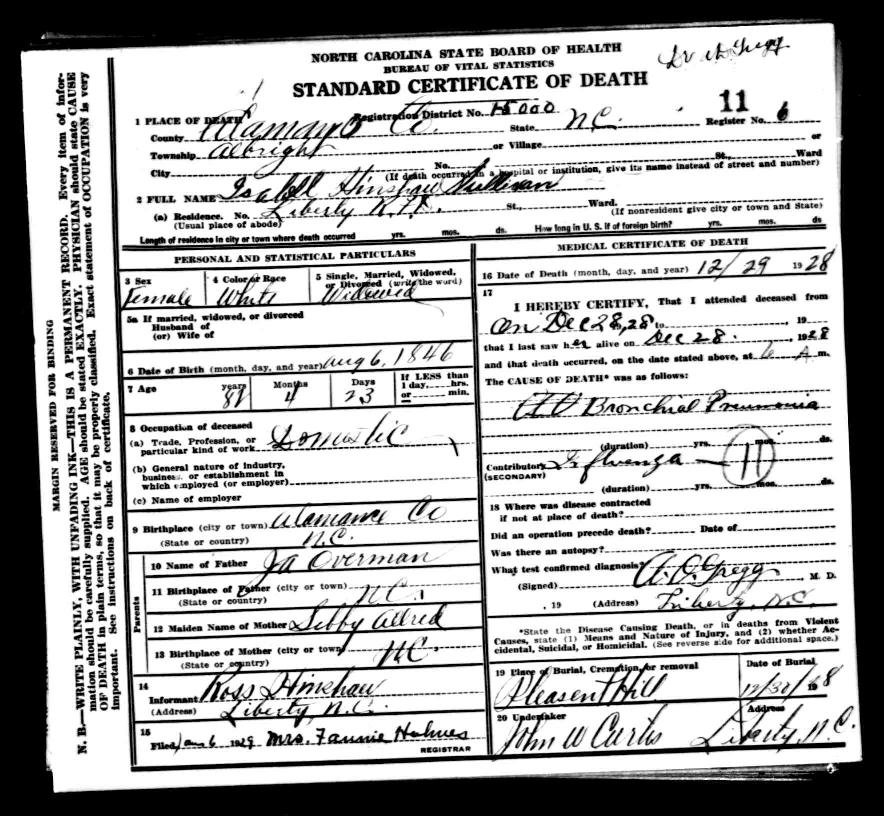 NORTH CAROLINA STATE BOARD OF HEALTH
BUREAU OF VITAL STATISTICS
STANDARD CERTIFICATE OF DEATH
Gregg
1 PLACE OF DEATH
Registration District No. 15000
11
County Alamance Co. State N.C. Register No. 6
Township Albright or Village or
City No. St., Ward
(If death occurred in a hospital or institution, give its name instead of street and number)
2 FULL NAME Isabell Hinshaw Sullivan
(a) Residence. No. Liberty R.F.D. St., Ward.
(Usual place of abode) (If nonresident give city or town and State)
Length of residence in city or town where death occurred yrs. mos. ds. How long in U. S. if of foreign birth? yrs. mos. ds
PERSONAL AND STATISTICAL PARTICULARS
3 Sex 4 Color or Race 5 Single, Married, Widowed, or Divorced (write the word)
Female White Widowed
5a If married, widowed, or divorced
Husband of
(or) Wife of
6 Date of Birth (month, day, and year) Aug 6, 1846
7 Age years Months Days If LESS than 1 day, hrs. or min.
82 4 23
8 Occupation of deceased
(a) Trade, Profession, or particular kind of work Domestic
(b) General nature of industry, business, or establishment in which employed (or employer)
(c) Name of employer
9 Birthplace (city or town) Alamance Co
(State or country) N.C.
Parents
10 Name of Father Ja Overman
11 Birthplace of Father (city or town)
(State or country) N.C.
12 Maiden Name of Mother Libby Allred
13 Birthplace of Mother (city or town)
(State or country) N.C.
14
Informant Ross Hinshaw
(Address) Liberty, N.C.
15
Filed Jan 6 1929 Mrs. Fannie Holmes
REGISTRAR
MEDICAL CERTIFICATE OF DEATH
16 Date of Death (month, day, and year) 12/29 1928
17
I HEREBY CERTIFY, That I attended deceased from
on Dec 28, 28 to , 19
that I last saw her alive on Dec 28. , 1928
and that death occurred, on the date stated above, at 6 A m.
The CAUSE OF DEATH* was as follows:
Bronchial Pneumonia
(duration) yrs. mos. ds.
Contributory Influenza 11
(SECONDARY)
(duration) yrs. mos. ds.
18 Where was disease contracted
if not at place of death?
Did an operation precede death? Date of
Was there an autopsy?
What test confirmed diagnosis?
(Signed) A.O. Gregg, M. D.
, 19 (Address) Liberty, N.C.
*State the Disease Causing Death, or in deaths from Violent
Causes, state (1) Means and Nature of Injury, and (2) whether Ac-
cidental, Suicidal, or Homicidal. (See reverse side for additional space.)
19 Place of Burial, Cremation, or removal Date of Burial
Pleasent Hill 12/30/1928
20 Undertaker Address
John W Curtis Liberty, N.C.
MARGIN RESERVED FOR BINDING
N. B.—WRITE PLAINLY, WITH UNFADING INK—THIS IS A PERMANENT RECORD. Every item of infor-
mation should be carefully supplied. AGE should be stated EXACTLY. PHYSICIAN should state CAUSE
OF DEATH in plain terms, so that it may be properly classified. Exact statement of OCCUPATION is very
important. See instructions on back of certificate.